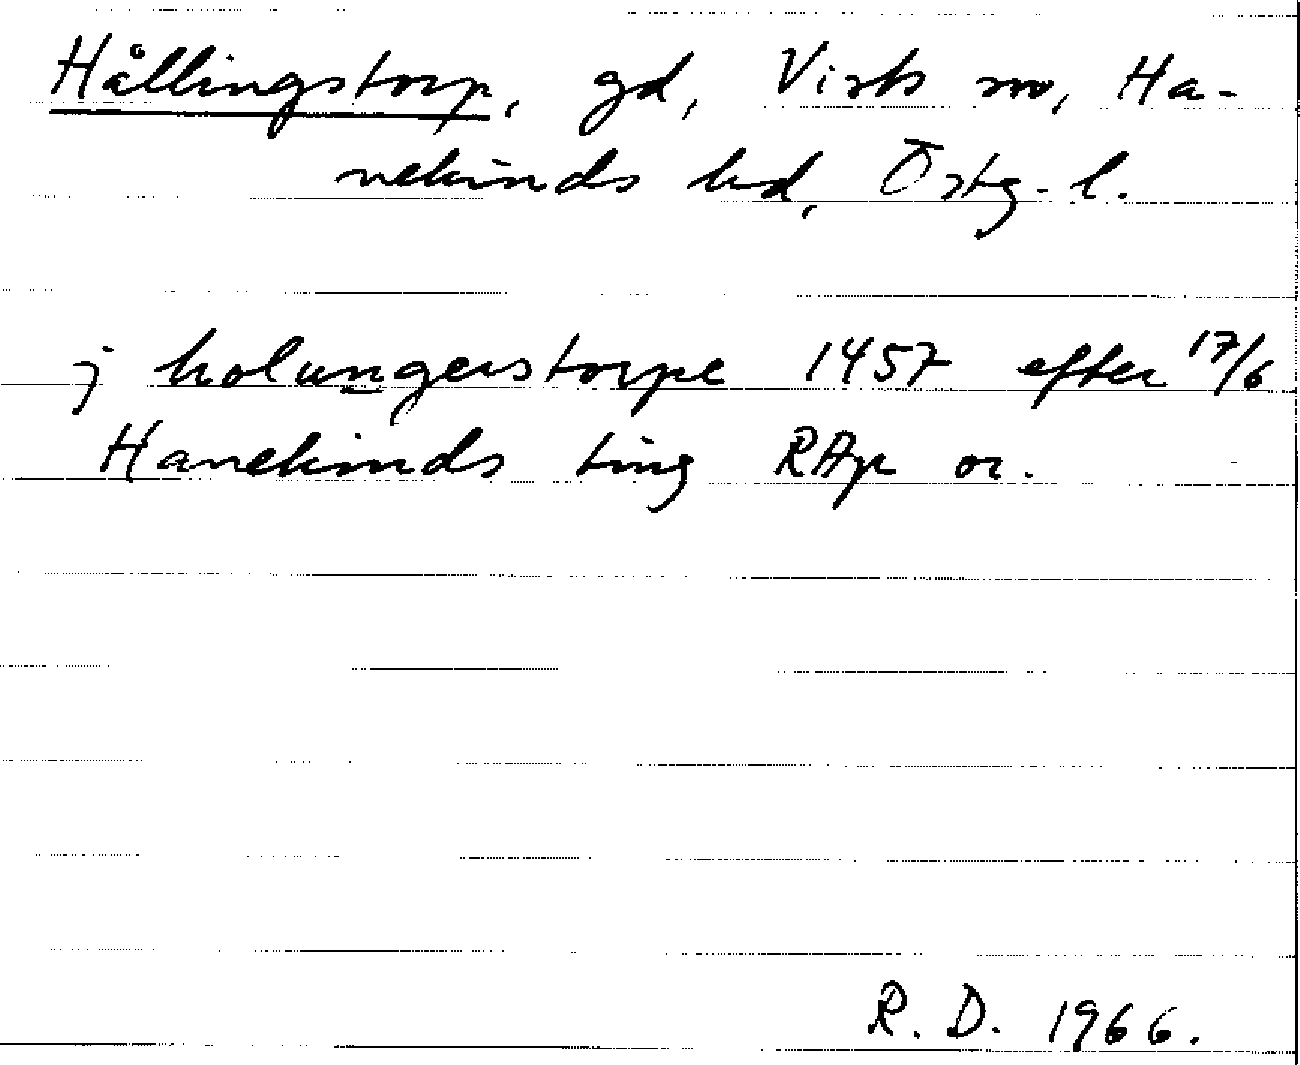 Hållingstorp, gd, Viste sn, Ha-
nekinds hd, Östg. l.
j holungerstorpe 1457 efter 17/6
Hanekinds ting RAp or.
R. D. 1966.